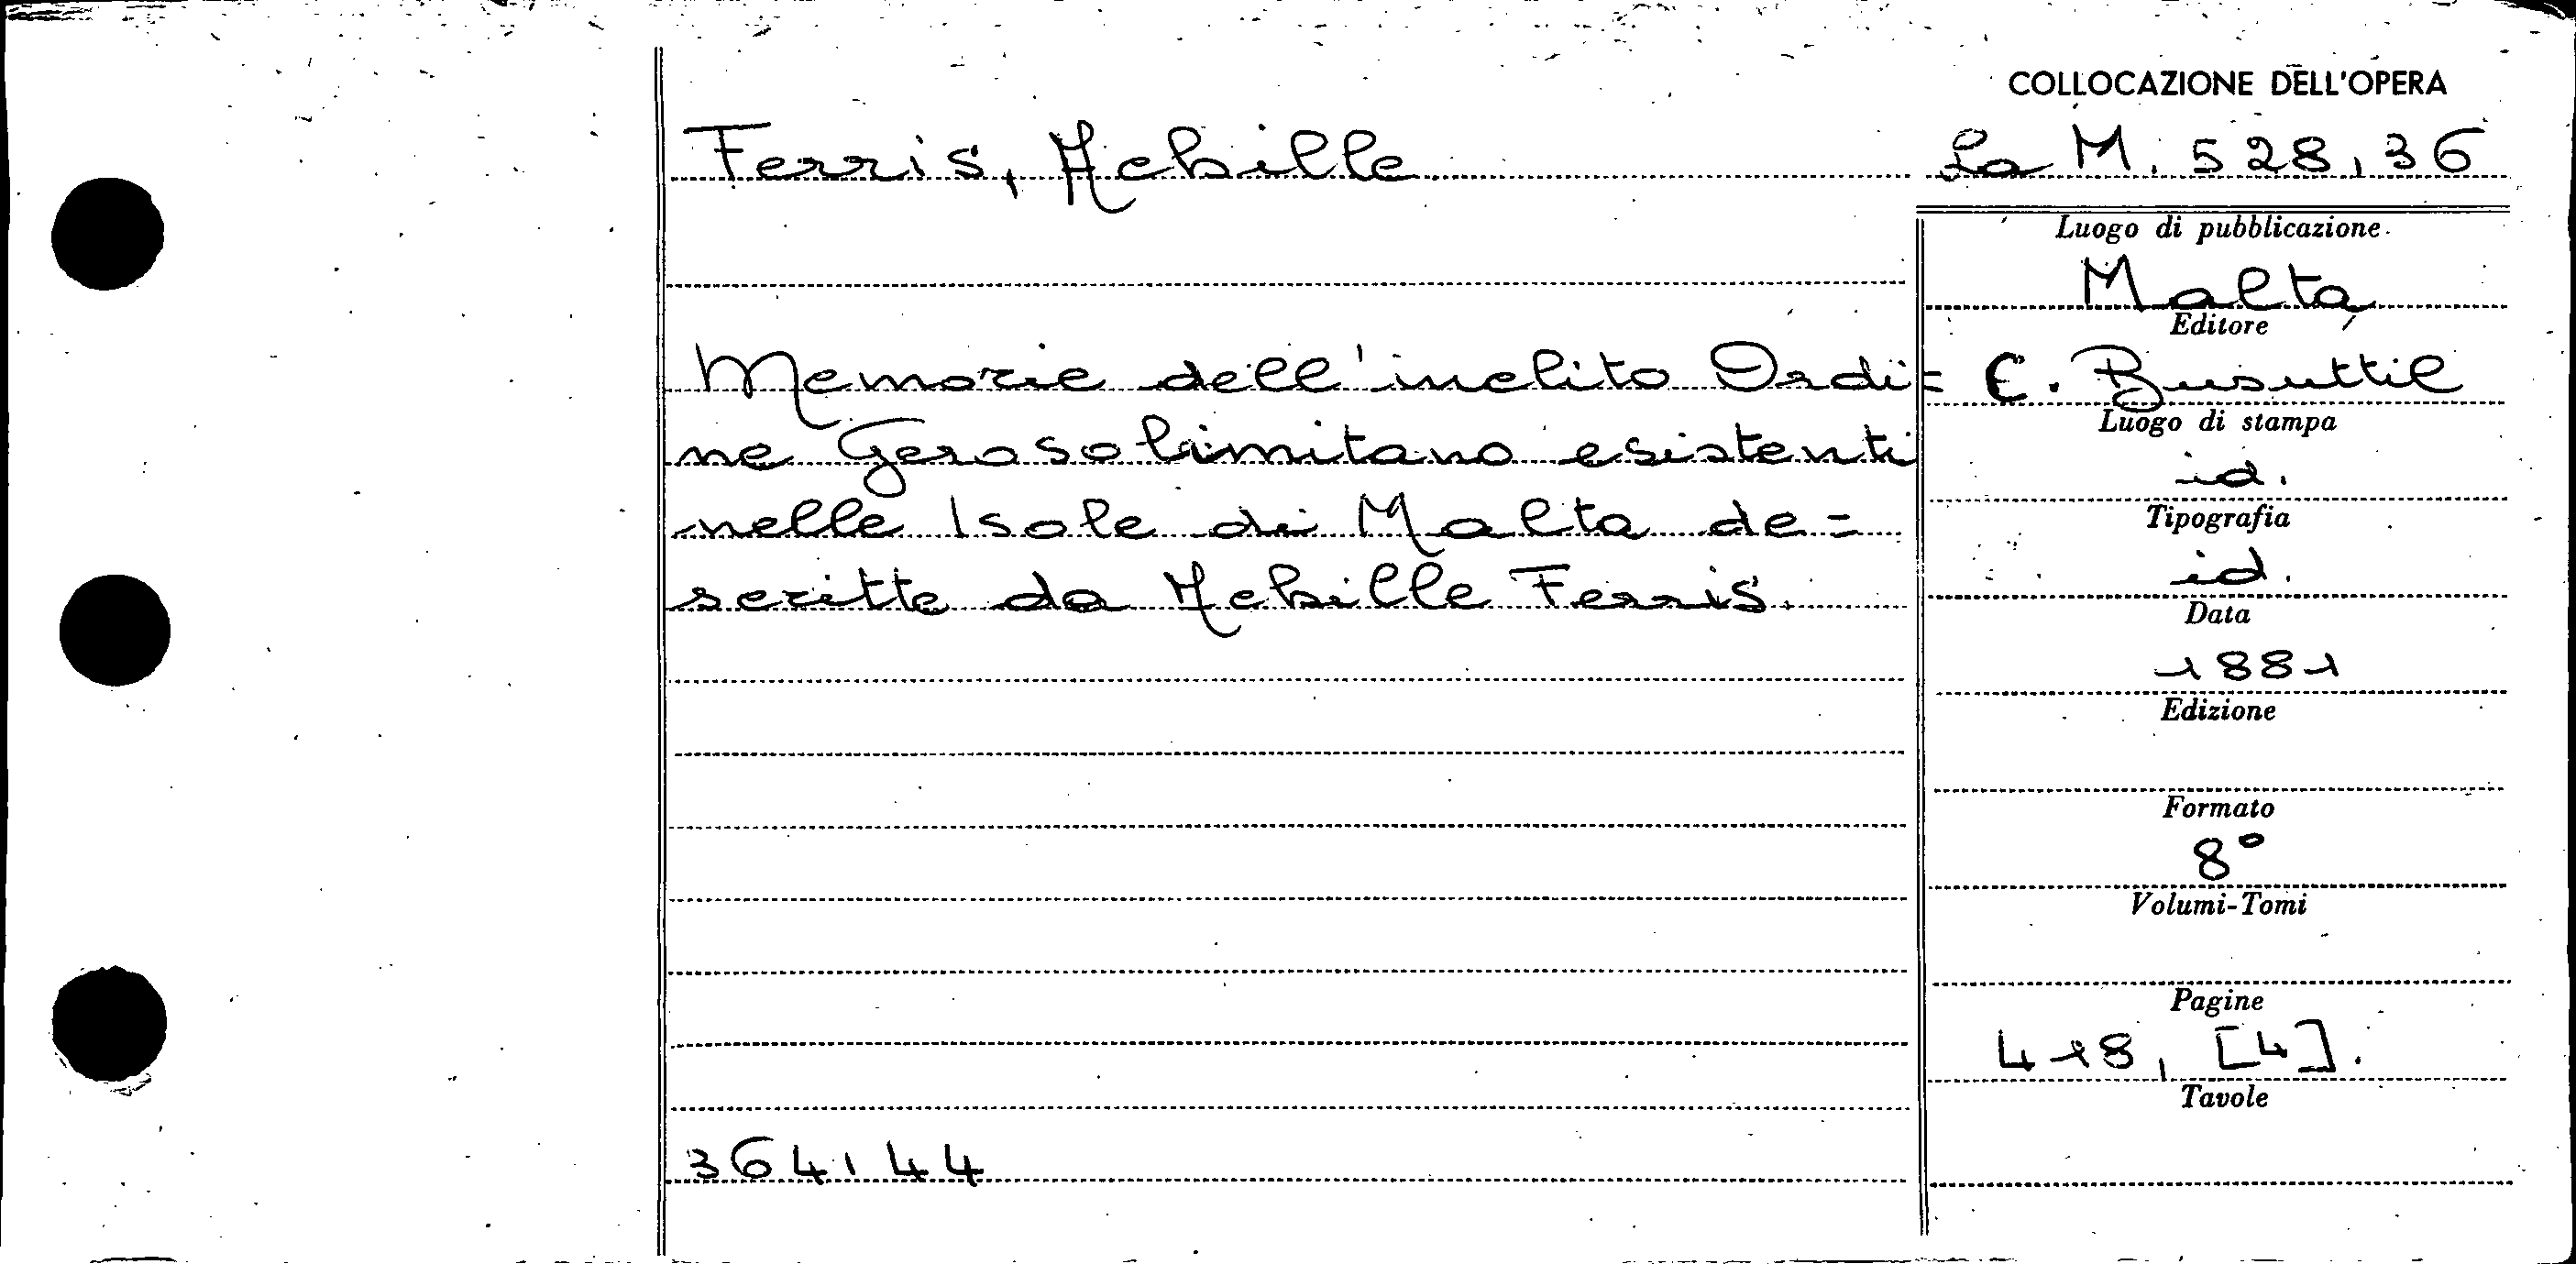 COLLOCAZIONE DELL'OPERA
Ferris, Achille
La M. 528,36
Luogo di pubblicazione
Malta
Editore
Memorie dell'inclito Ordi=
C. Busuttil
Luogo di stampa
ne Gerosolimitano esistenti
id.
nelle Isole di Malta de=
Tipografia
scritte da Achille Ferris.
id.
Data
1881
Edizione
Formato
8°
Volumi-Tomi
Pagine
418, [4].
Tavole
364144